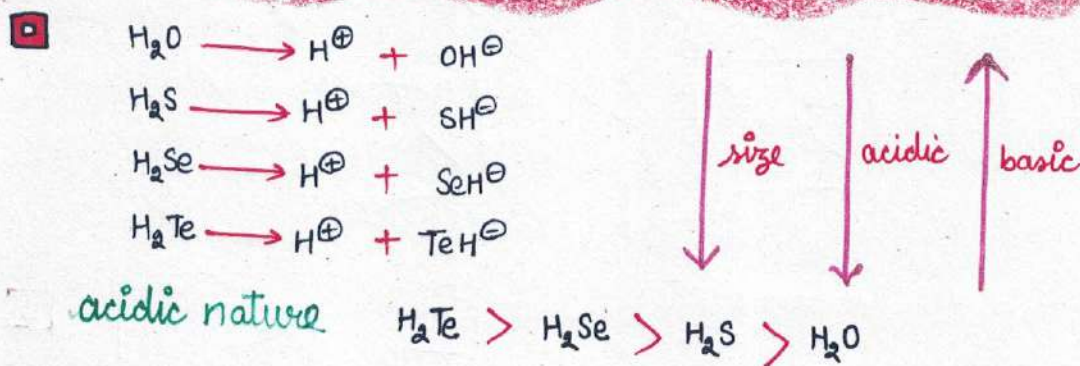 H₂O ⟶ H⊕ + OH⊖
H₂S ⟶ H⊕ + SH⊖
H₂Se ⟶ H⊕ + SeH⊖
H₂Te ⟶ H⊕ + TeH⊖
size
acidic
basic
acidic nature H₂Te > H₂Se > H₂S > H₂O